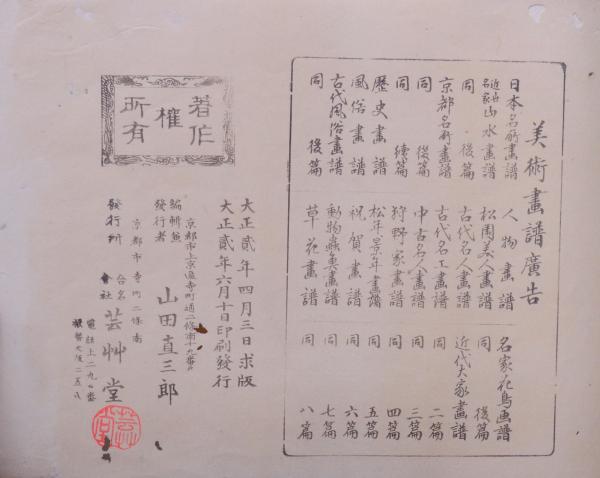 美術畫譜廣告
日本名所畫譜
近世名家山水畫譜
同 後篇
京都名所畫譜
同 後篇
同 續篇
歷史畫譜
風俗畫譜
古代風俗畫譜
同 後篇
人物畫譜
松園美人畫譜
古代名人畫譜
古代名工畫譜
中古名人畫譜
狩野家畫譜
松年景年畫譜
祝賀畫譜
動物蟲魚畫譜
草花畫譜
名家花鳥画譜
同 後篇
近代大家畫譜
同 二篇
同 三篇
同 四篇
同 五篇
同 六篇
同 七篇
同 八篇
大正貳年四月三日求版
大正貳年六月十日印刷發行
京都市上京區寺町通二條南十九番戸
編輯兼發行者 山田直三郎
京都市寺町二條南
發行所 合名會社 芸艸堂
電話上二九〇番
著作權所有
芸艸堂